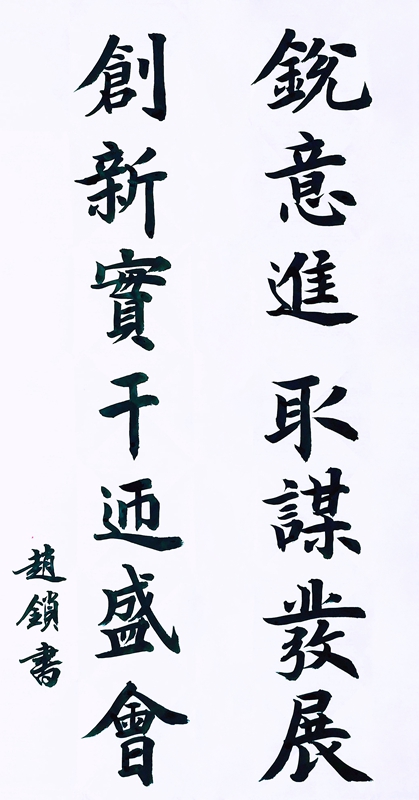 銳意進取謀發展
創新實干迎盛會
趙鎖書